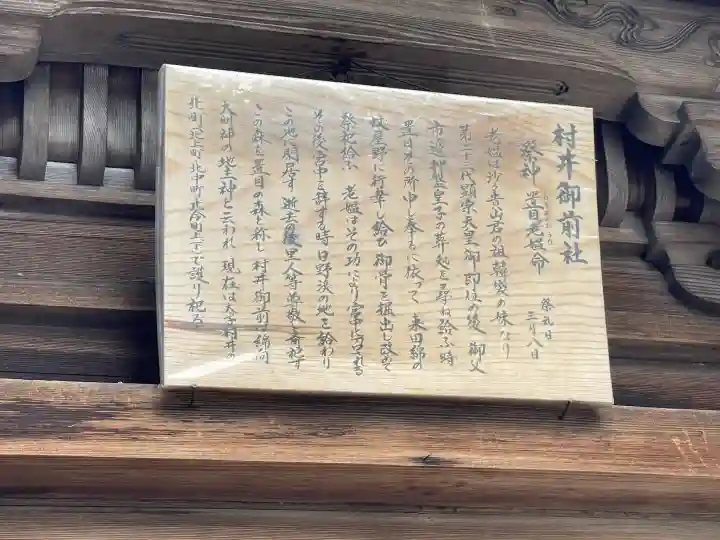 村井御前社
祭神 置目老媼命
祭礼日
三月八日
老媼は沙々貴山君の祖韓袋の妹なり
第二十三代顕宗天皇御即位の後 御父
市辺押磐皇子の葬処を尋ね給ふ時
置目その所申し奉るに依って 来田綿の
蚊屋野に行幸し給ひ 御骨を掘出し改めて
祭祀給ふ 老媼はその功により宮中に召される
その後宮中を辞する時日野渓の地を給わり
この地に閑居す 逝去の後里人等尊敬し奇祀す
この森を置目の森と称し村井御前 綿向
大明神の地主神と云われ 現在は大字村井の
北町 北上町 北中町 北今町 上下で護り祀る